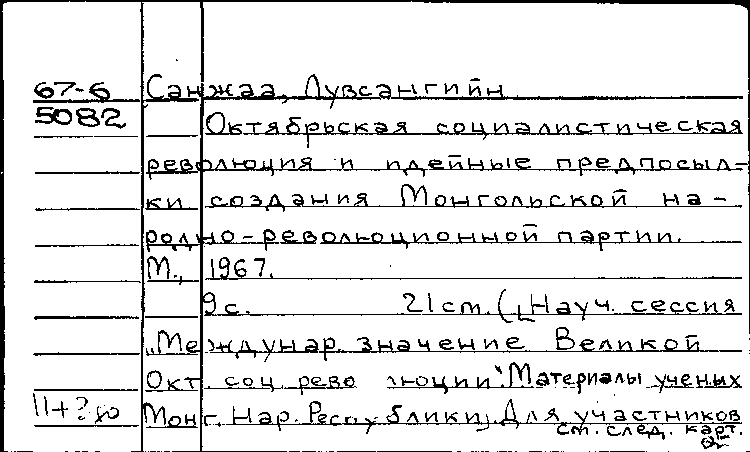 67-6 Санжаа, Лувсангийн
5082 Октябрьская социалистическая
революция и идейные предпосыл-
ки создания Монгольской на-
родно-революционной партии.
М., 1967.
9 с. 21 cm. ([Науч. сессия
„Междунар. значение Великой
Окт. соц. рево люции". Материалы ученых
Монг. Нар. Республики]. Для участников
см. след. карт.